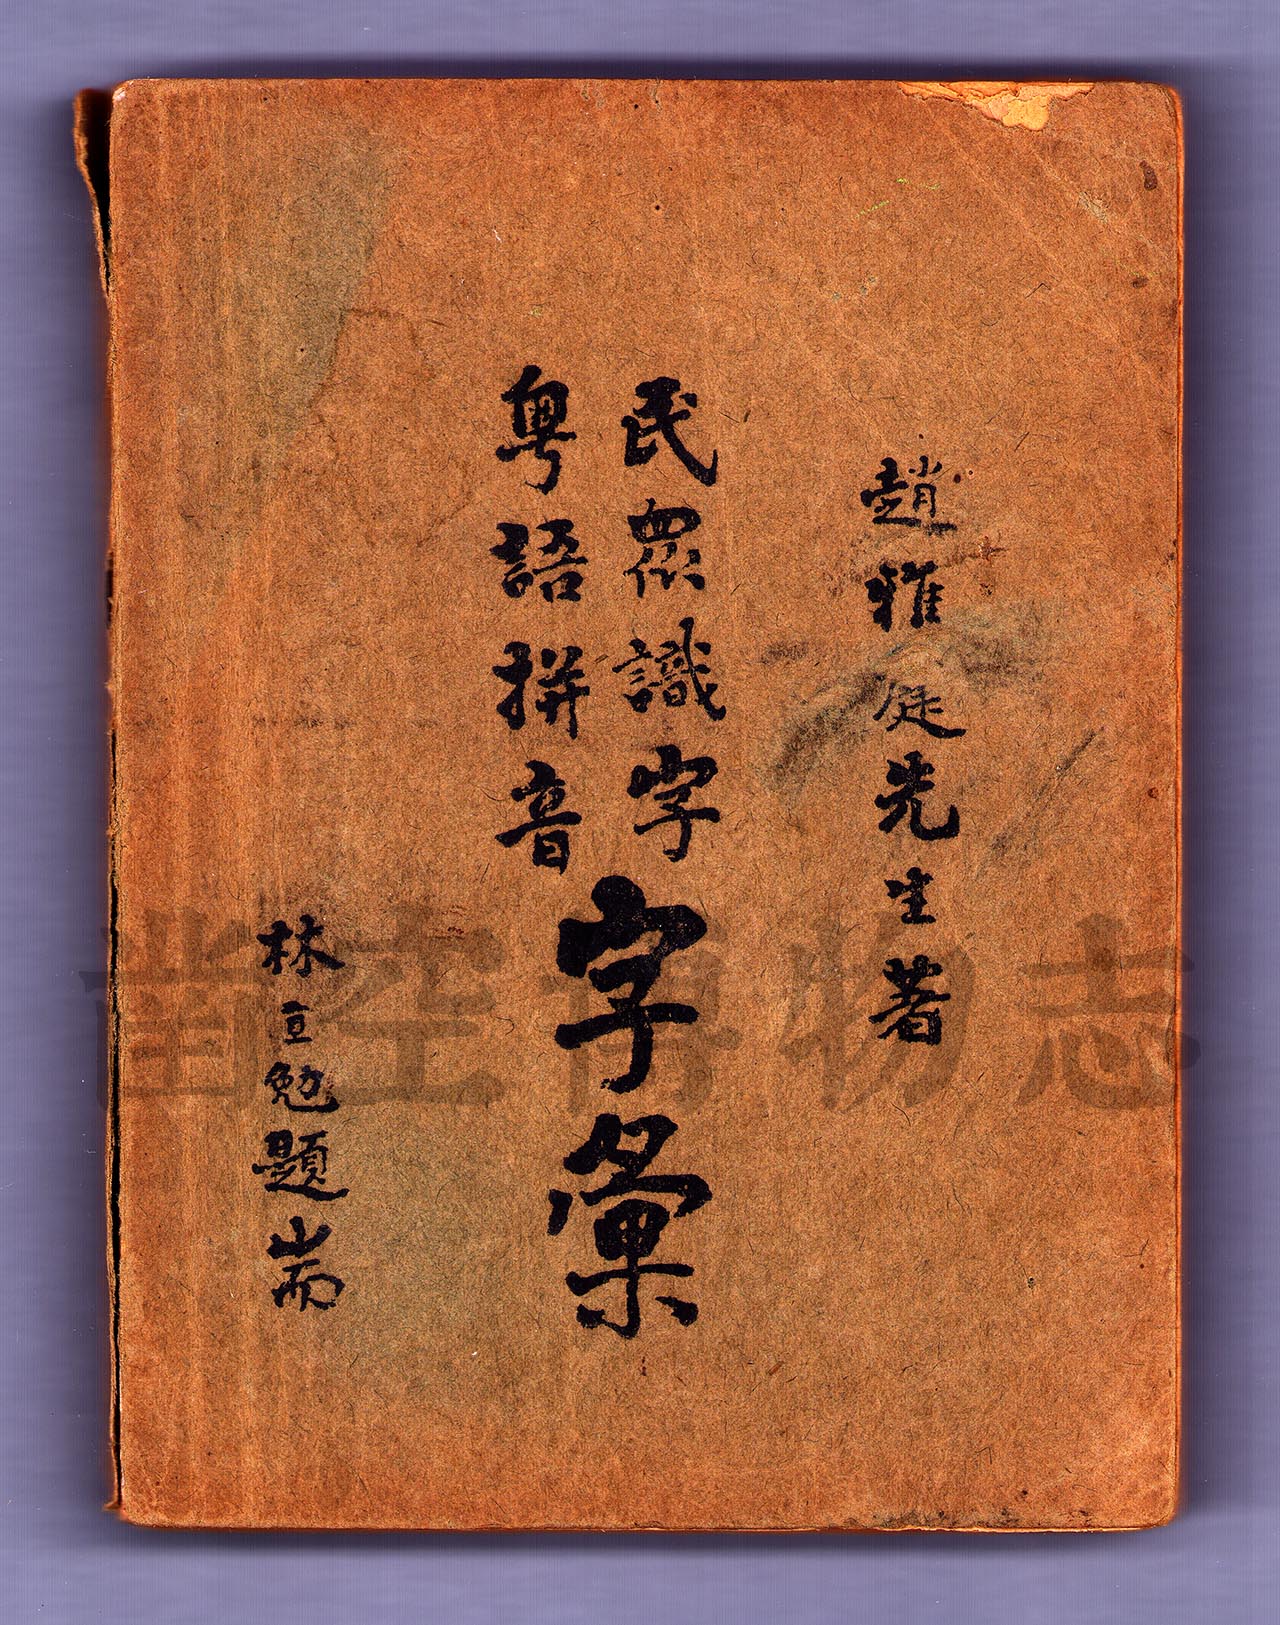 趙雅庭先生著
民眾識字
粵語拼音
字彙
林亘勉題耑
博物志